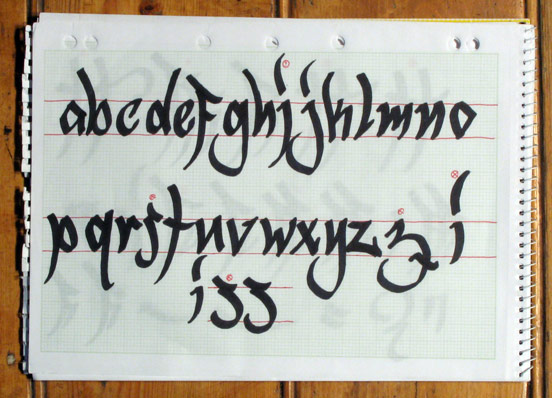 abcdefghijklmno
pqrstuvwxyzzzi
izz